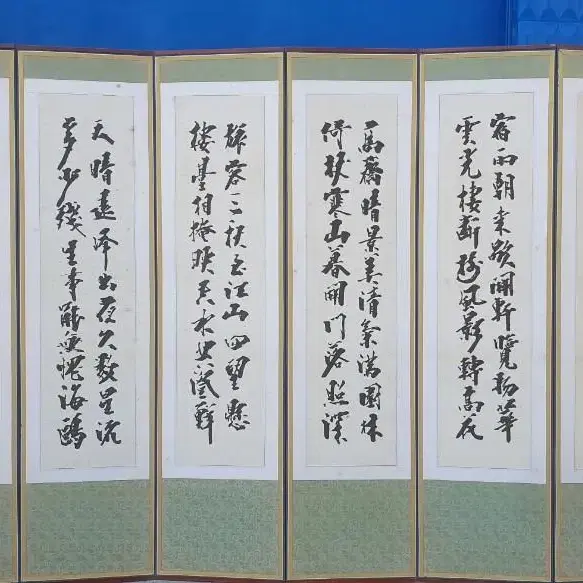 宿雨朝來歇開軒覽物華
雲光棲斷樹風影轉高花
高齋晴景美清氣滿園林
倚杖寒山暮開門落照深
三秋至江山四望懸
樓臺相掩映天水澄鮮
天晴遠峰出夜久數星流
多少殘生事愧海鷗